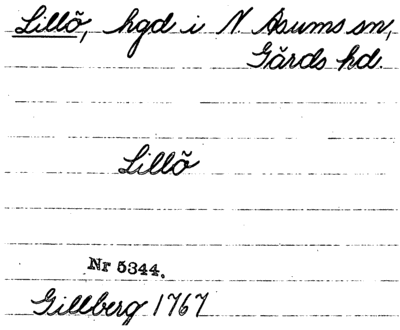 Lillö, hgd i N Åsums sn,
Gärds hd.
Lillö
Nr 5344.
Gillberg 1767